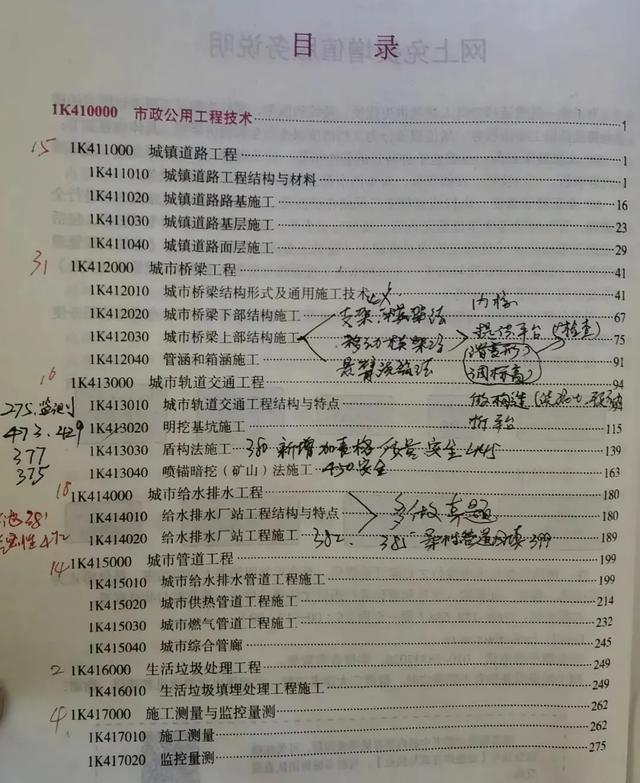 目 录
1K410000 市政公用工程技术 1
15 1K411000 城镇道路工程 1
1K411010 城镇道路工程结构与材料 1
1K411020 城镇道路路基施工 16
1K411030 城镇道路基层施工 23
1K411040 城镇道路面层施工 29
31 1K412000 城市桥梁工程 41
1K412010 城市桥梁结构形式及通用施工技术 41
1K412020 城市桥梁下部结构施工 67
1K412030 城市桥梁上部结构施工 75
1K412040 管涵和箱涵施工 91
16 1K413000 城市轨道交通工程 94
1K413010 城市轨道交通工程结构与特点
1K413020 明挖基坑施工 115
377 1K413030 盾构法施工 139
375 1K413040 喷锚暗挖（矿山）法施工 450安全 163
18 1K414000 城市给水排水工程 180
1K414010 给水排水厂站工程结构与特点 多做真题 180
1K414020 给水排水厂站工程施工 382. 189
14 1K415000 城市管道工程 199
1K415010 城市给水排水管道工程施工 199
1K415020 城市供热管道工程施工 214
1K415030 城市燃气管道工程施工 232
1K415040 城市综合管廊 245
2 1K416000 生活垃圾处理工程 249
1K416010 生活垃圾填埋处理工程施工 249
4 1K417000 施工测量与监控量测 262
1K417010 施工测量 262
1K417020 监控量测 275